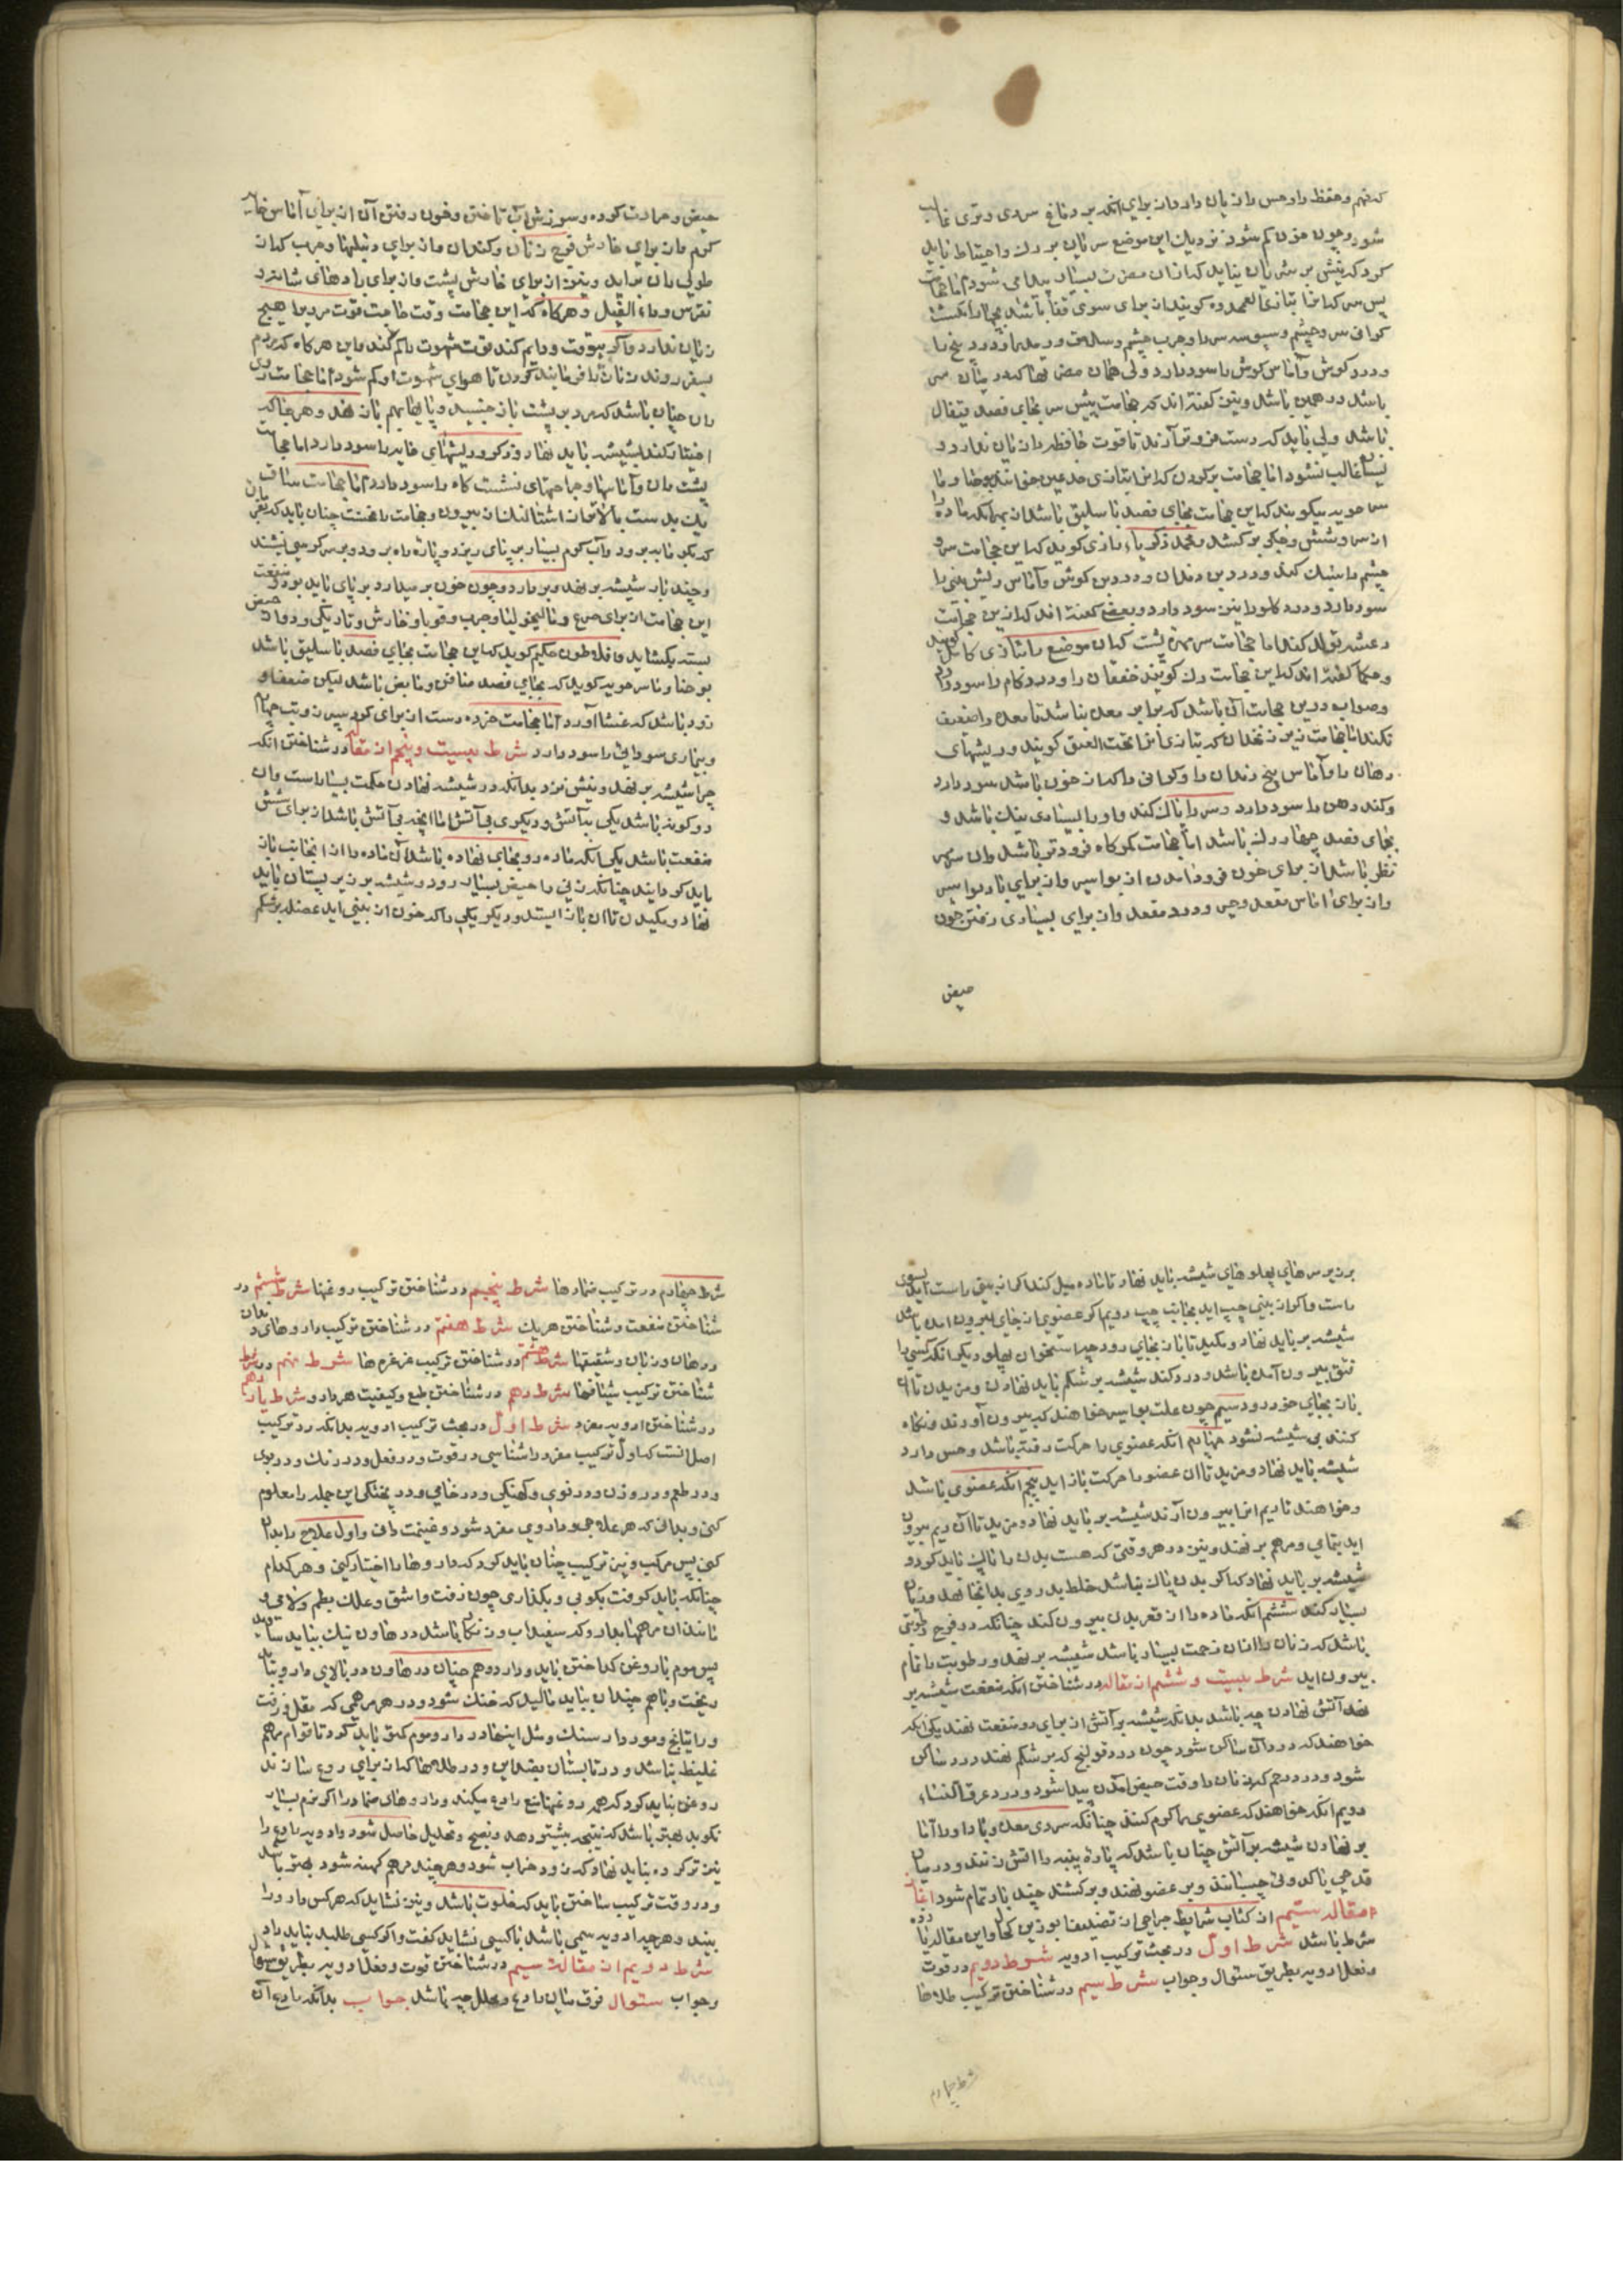 که فهم و حفظ را و حس را زیان دارد از برای آنکه بر دماغ سردی و تری غالب
شود و چون خون کم شود نزدیک این موضع سریان بزرگ و احتیاط باید
کرد که نیش بر شریان نیاید که از آن مضرت بسیار پیدا می شود اما حجامت
کرانی سر و چشم و
و درد گوش و آماس گوش را سود دارد ولی همان مضرتها که در میان سر
باشد در همین باشد و نیز گفته اند که حجامت پیش سر بجای فصد قیفال
باشد ولی باید که دست فروتر آرند تا قوت حافظه را زیان ندارد و
نسیان غالب نشود اما حجامت بر گردن که آنرا بتازی اخدعین خوانند یوحنا و ما
سر جویه میگویند که این حجامت بجای فصد باسلیق باشد از بهر آنکه ماده را
از سر و شش و جگر بر کشد محمد زکریاء رازی گوید که این حجامت سر و
چشم را سبک کند و درد بن دندان و درد بن گوش و آماس و ریش بینی را
سود دارد و درد گلو را نیز سود دارد و بعضی گفته اند که ازین حجامت
رعشه تولد کند اما حجامت سر مهره پشت که آن موضع را بتازی کاهل گویند
و حکما گفته اند که این حجامت رگ گویند خفقان را و درد کام را سود دارد
و صواب درین حجامت آن باشد که برابر معده نباشد تا معده را ضعیف
نکند اما حجامت زیر زنخدان که بتازی آنرا تحت العنق گویند و ریشهای
دهان را و آماس بیخ دندان را و کوانی را که از خون باشد سود دارد
و گند دهن را سود دارد و سر را پاک کند و او را بسیاری نیک باشد و
بجای فصد چهار رگ باشد اما حجامت کمرگاه فرودتر باشد و آن سه
نظر باشد از برای خون فرود آمدن از بواسیر و از برای باد بواسیر
و از برای آماس مقعد و حیز و درد مقعد و از برای بسیاری رفتن خون
حیض
حیض و حرارت گرده و سوزش آب تاختن و خون رفتن آن از برای آماس خایه
گرم و از برای خارش فرج زنان و کندران و از برای دنبلها و جرب که از
طولی ران برآید و نیز از برای خارش پشت و از برای بادهای شانه و
نقرس و داء الفیل و هرگاه که این حجامت وقت حاجت قوت مردیرا هیچ
زیان ندارد و اگر بیوقت و دایم کند قوت شهوت را کم کند و این هرگاه که مردم
بسفر روند زنانرا فرمایند کردن تا هوای شهوت او کم شود اما حجامت روی
ران چنان باشد که مرد بر پشت باز خسپد و پایها بهم باز نهد و هر جا که
اختیار کند شیشه باید نهاد و ذکر و ریشهای خایه را سود دارد اما حجامت
پشت ران و آماسها و جراحتهای نشست گاه را سود دارد اما حجامت ساق
یک بدست بالاتر از اشتالنک از بیرون و حجامت را نخست چنان باید که پیش از آن
که بگرمابه برود و آب گرم بسیار بر پای ریزد و پاره راه برود و بر سر کرسی نشیند
و چند بار شیشه بر نهد و بر دارد و چون خون بر میدارد بر پای باید بود و منفعت
این حجامت از برای صرع و مالیخولیا و جرب و قوبا و خارش و تاریکی و دوار حیض
بسته بگشاید و افلاطون حکیم گوید که این حجامت بجای فصد باسلیق باشد
یوحنا و ماسرجویه گوید که بجای فصد صافن و مابض باشد لیکن ضعف او
زود باشد که غشی آورد اما حجامت خرده دست از برای گر و سپرز و تب چهارم
و بیماری سودایی را سود دارد شرط بیست و پنجم از مقاله در شناختن آنکه
چرا شیشه بر نهد و نیش نزند بدانکه در شیشه نهادن حکمت بسیار است و آن
دو گونه باشد یکی بآتش و دیگری بی آتش اما آنچه بی آتش باشد از برای شش
منفعت باشد یکی آنکه ماده رو بجای نهاده باشد آن ماده را از آنجانب باز
باید گردانید چنانکه زنی را حیض بسیار رود و شیشه بر زیر پستان باید
نهاد و مکیدن تا آن باز ایستد و دیگر یکی را که خون از بینی آید عضد بر شکم
بر زیر سرهای پهلوهای شیشه باید نهاد تا ماده میل کند اگر از بینی راست آید بسوی
راست و اگر از بینی چپ آید بجانب چپ دویم اگر عضوی از جای بیرون آمده باشد
شیشه بر باید نهاد و مکید تا باز بجای رود چون استخوان پهلو دیگر آنکه کسی را
فتق بیرون آمده باشد و درد کند شیشه بر شکم باید نهادن و مزیدن تا آن
باز بجای خود رود سیم چون علت بواسیر خواهند که بیرون آورند و نگاه
کنند بی شیشه نشود چهارم آنکه عضوی را حرکت رفته باشد و حس دارد
شیشه باید نهاد و مزید تا آن عضو را حرکت باز آید پنجم آنکه عضوی باشد
و خواهند تا ریم ازو بیرون آرند شیشه بر باید نهاد و مزید تا آن ریم بیرون
آید بتمامی و مرهم بر نهند و نیز در هر وقتی که هست بدن را پاک باید کرد و
شیشه بر باید نهاد که اگر بدن پاک نباشد خلط بد روی بدانجا نهد و زیان
بسیار کند ششم آنکه ماده را از قعر بدن بیرون کند چنانکه در فرج رطوبتی
باشد که زنان را از آن زحمت بسیار باشد شیشه بر نهد و رطوبت را تمام
بیرون آید شرط بیست و ششم از مقاله در شناختن آنکه منفعت شیشه بر
نهد آتش نهادن چه باشد بدانکه شیشه بر آتش از برای دو منفعت نهند یکی آنکه
خواهند که درد آن ساکن شود چون درد قولنج که بر شکم نهند درد ساکن
شود و درد رحم که زنان را وقت حیض آمدن پیدا شود و درد عرق النساء
دویم آنکه خواهند که عضوی را گرم کنند چنانکه سردی معده و باد او را اما
بر نهادن شیشه بر آتش چنان باشد که پاره پنبه را آتش زنند و در میان
قدحی یا کدوئی چسبانند و بر عضو نهند و بر کشند چند بار تمام شود اغاز
مقاله سیم از کتاب شرایط جراحی از تصنیف ابو زین کحال و این مقاله یازده
شرط باشد شرط اول در بحث ترکیب ادویه شرط دویم در قوت
و فعل ادویه بطریق سئوال و جواب شرط سیم در شناختن ترکیب طلاها
شرط چهارم
شرط چهارم در ترکیب ضمادها شرط پنجم در شناختن ترکیب روغنها شرط ششم در
شناختن منفعت و شناختن هریک شرط هفتم در شناختن ترکیب داروهای دندان
و دهان و زبان و شقیقها شرط هشتم در شناختن ترکیب غرغرها شرط نهم در
شناختن ترکیب شیافها شرط دهم در شناختن طبع و کیفیت هر دارو شرط یازدهم
در شناختن ادویه مفرد شرط اول در بحث ترکیب ادویه بدانکه در ترکیب
اصل آنست که اول ترکیب مفرد را شناسی در قوت و در فعل و در رنگ و در بوی
و در طعم و در وزن و در نوی و کهنگی و در خامی و در پختگی این جمله را معلوم
کنی و بدانی که هر علاجی و داروی مفرد شود و غنیمت دان و اول علاج را بدان
کنی پس مرکب و نیز ترکیب چنان باید کرد که داروها را اختیار کنی و هر کدام
چنانکه باید کوفت بکوبی و بگذاری چون زفت و اشق و علک بطم و لامی و
مانند آن مرهمها بدارو که سفیداب و زنگار باشد در هاون نیک بباید سائید
پس موم با روغن گداختن باید و دارو هم چنان در هاون در بالای دارو بباید
ریخت و با هم چندان بباید مالید که خنک شود و در هر مرهمی که مقل و زفت
و راتیانج و مورد و اسنک و مثل اینها دارد و موم کمتر باید کرد تا قوام مرهم
غلیظ نباشد و در تابستان بضد این و در طلاها که از برای روع سازند
روغن نباید کرد که همه روغنها منع رادع میکند و داروهای ضماد را اگر نرم بسیار
نکوبد بهتر باشد که نتیجه بیشتر دهد و نضج و تحلیل حاصل شود و ادویه رادع را
نیز تر کرده بباید نهاد که زود خراب شود و هر چند مرهم کهنه شود بهتر باشد
و در وقت ترکیب ساختن باید که خلوت باشد و نیز نشاید که هر کس دارو را
بیند و هر چه ادویه سمی باشد با کسی نشاید گفت و اگر کسی طلبد نباید داد
شرط دویم از مقالت سیم در شناختن قوت و فعل ادویه بطریق سئوال
و جواب سئوال فرق میان رادع و محلل چه باشد جواب بدانکه رادع آن